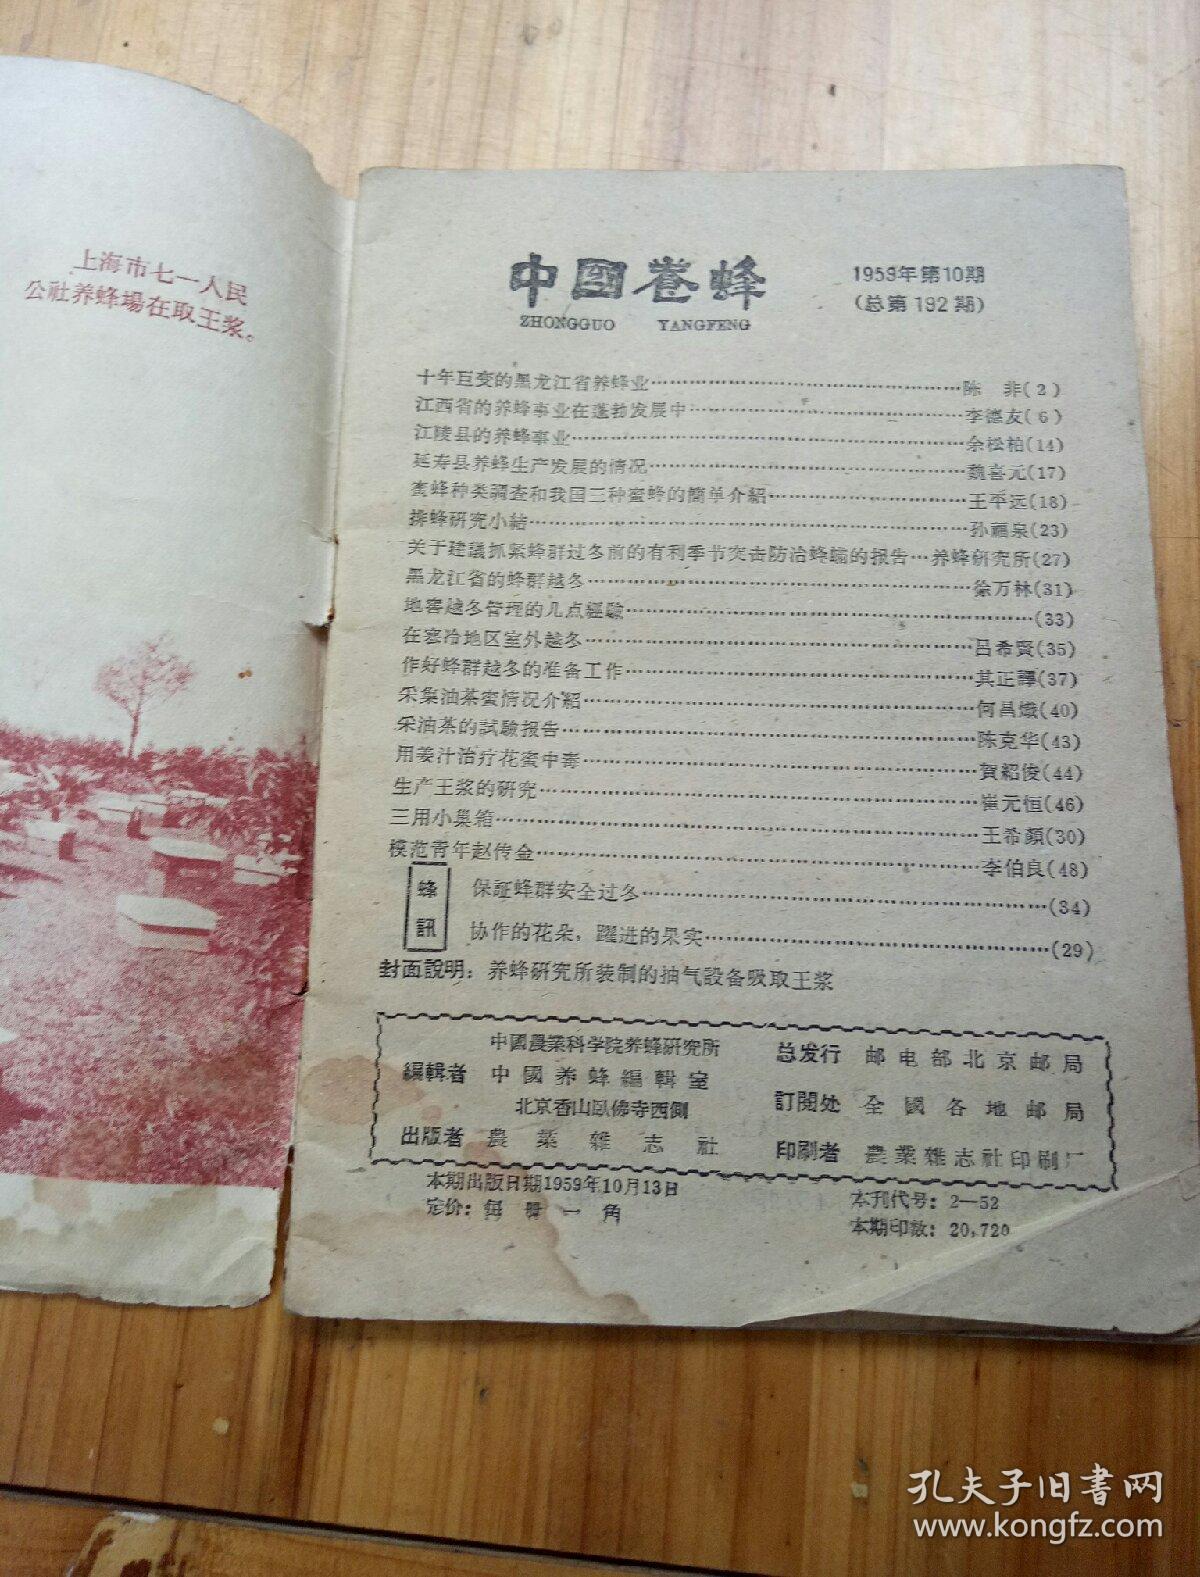 上海市七一人民
公社养蜂場在取王浆。
中國養蜂
ZHONGGUO YANGFENG
1959年第10期
(总第192期)
十年巨变的黑龙江省养蜂业……陈 非(2)
江西省的养蜂事业在蓬勃发展中……李德友(6)
江陵县的养蜂事业……余松柏(14)
延寿县养蜂生产发展的情况……魏喜元(17)
蜜蜂种类調查和我国三种蜜蜂的簡单介紹……王平远(18)
排蜂研究小結……孙福泉(23)
关于建議抓紧蜂群过冬前的有利季节突击防治蜂螨的报告…养蜂研究所(27)
黑龙江省的蜂群越冬……徐万林(31)
地窖越冬管理的几点經驗……(33)
在寒冷地区室外越冬……吕希賢(35)
作好蜂群越冬的准备工作……其正譚(37)
采集油茶蜜情况介紹……何昌熾(40)
采油茶的試驗报告……陈克华(43)
用姜汁治疗花蜜中毒……賀紹俊(44)
生产王浆的研究……崔元恒(46)
三用小巢箱……王希顏(30)
模范青年赵传金……李伯良(48)
蜂訊
保証蜂群安全过冬……(34)
协作的花朵，躍进的果实……(29)
封面說明：养蜂研究所装制的抽气設备吸取王浆
編輯者 中國農業科学院养蜂研究所
中國养蜂編輯室
北京香山臥佛寺西側
出版者 農業雜志社
总发行 邮电部北京邮局
訂閱处 全國各地邮局
印刷者 農業雜志社印刷厂
本期出版日期1959年10月13日
定价：每册一角
本刊代号：2—52
本期印数：20,720
孔夫子旧书网
www.kongfz.com